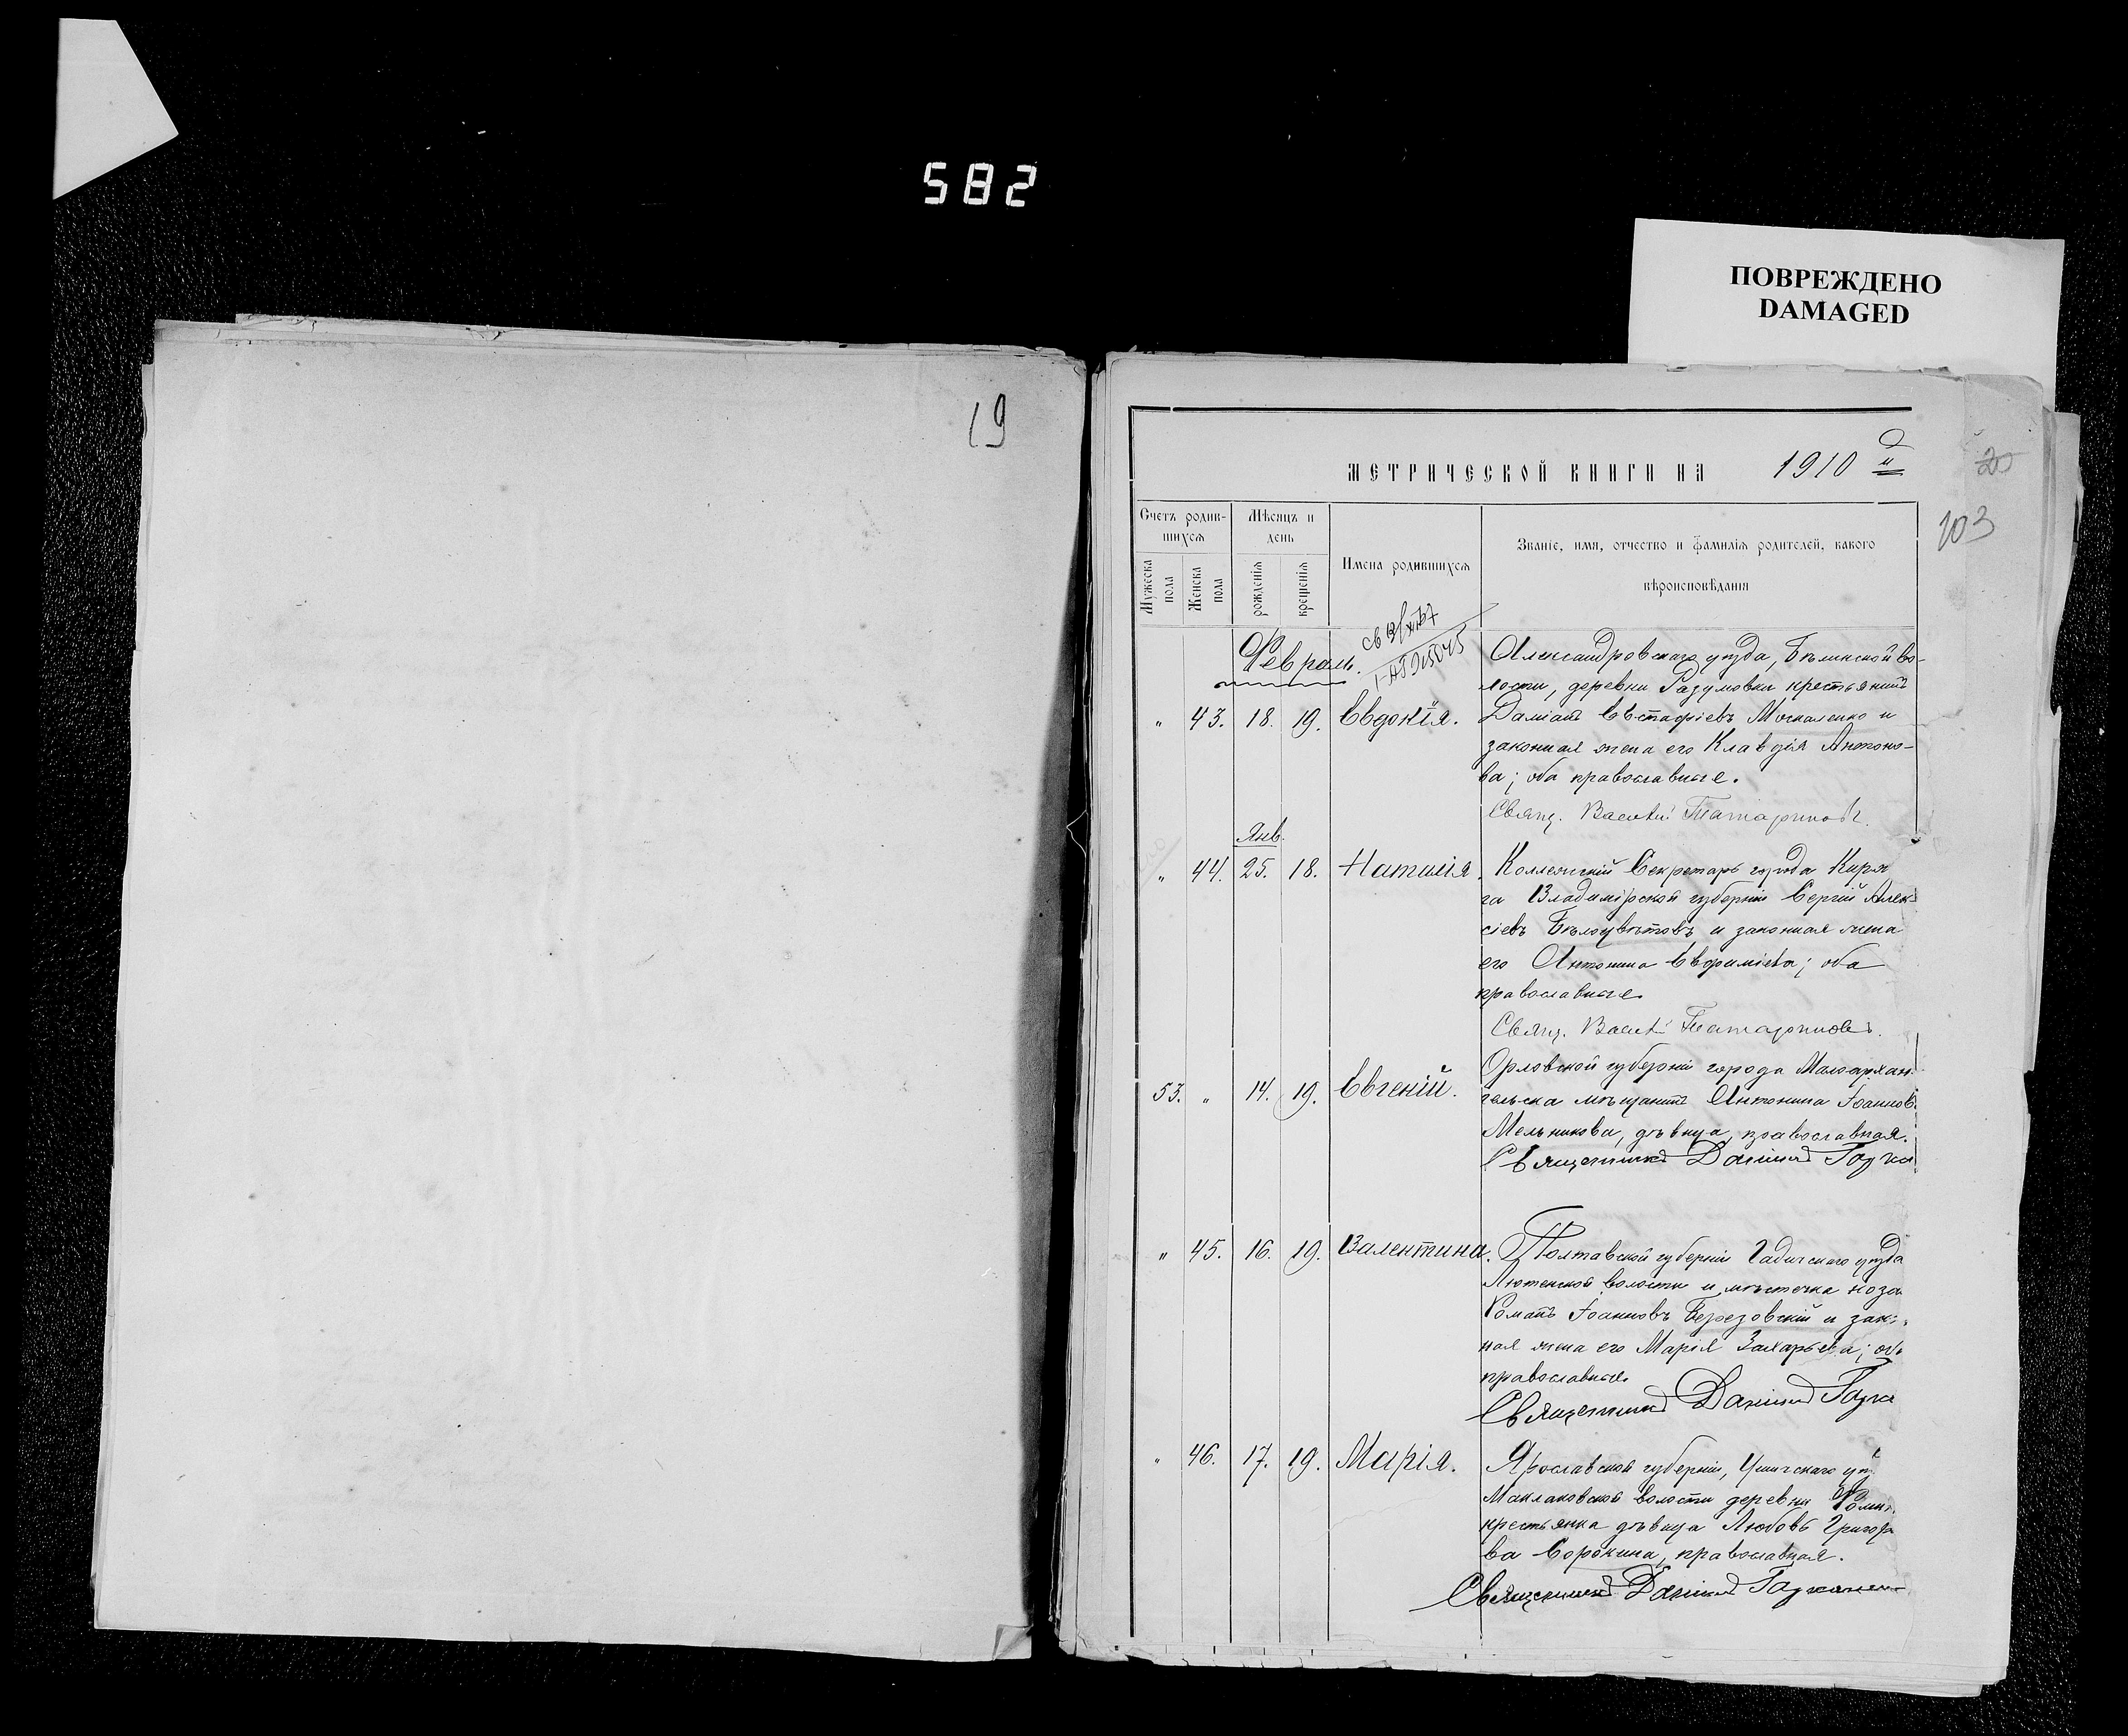 582
ПОВРЕЖДЕНО
DAMAGED
19
МЕТРИЧЕСКОЙ КНИГИ НА 1910
20
103
Счетъ родив-
шихся
Мѣсяцъ и
день
Имена родившихся
Званіе, имя, отчество и фамилія родителей, какого
вѣроисповѣданія
Мужеска
пола
Женска
пола
рожденія
крещенія
Февраль.
Александровскаго уѣзда, Бѣленской во-
лости, деревни Разумовки крестьянинъ
" 43. 18. 19. Евдокія. Даміанъ Евстафіевъ Москаленко и
законная жена его Клавдія Антоно-
ва; оба православные.
Свящ. Василій Татариновъ.
Янв.
" 44. 25. 18. Наталія. Коллежскій Секретарь города Киржа
га Владимірской губерніи Сергій Алек
сіевъ Бѣлоцвѣтовъ и законная жена
его Антонина Евфиміева; оба
православные.
Свящ. Василій Татариновъ.
Орловской губерніи города Малоархан-
53. " 14. 19. Евгеній. гельска мѣщанка Антонина Іоаннов.
Мельникова, дѣвица, православная.
Священникъ Даніилъ
" 45. 16. 19. Валентина. Полтавской губерніи Гадячскаго уѣзда
Лютенской волости и мѣстечка коза
Романъ Іоанновъ Березовскій и закон
ная жена его Марія Захарьева; оба
православные.
Священникъ Даніилъ
" 46. 17. 19. Марія. Ярославской губерніи, Угличскаго уѣз
Маклаковской волости деревни
крестьянка дѣвица Любовь Григорье
ва Сорокина, православная.
Священникъ Даніилъ